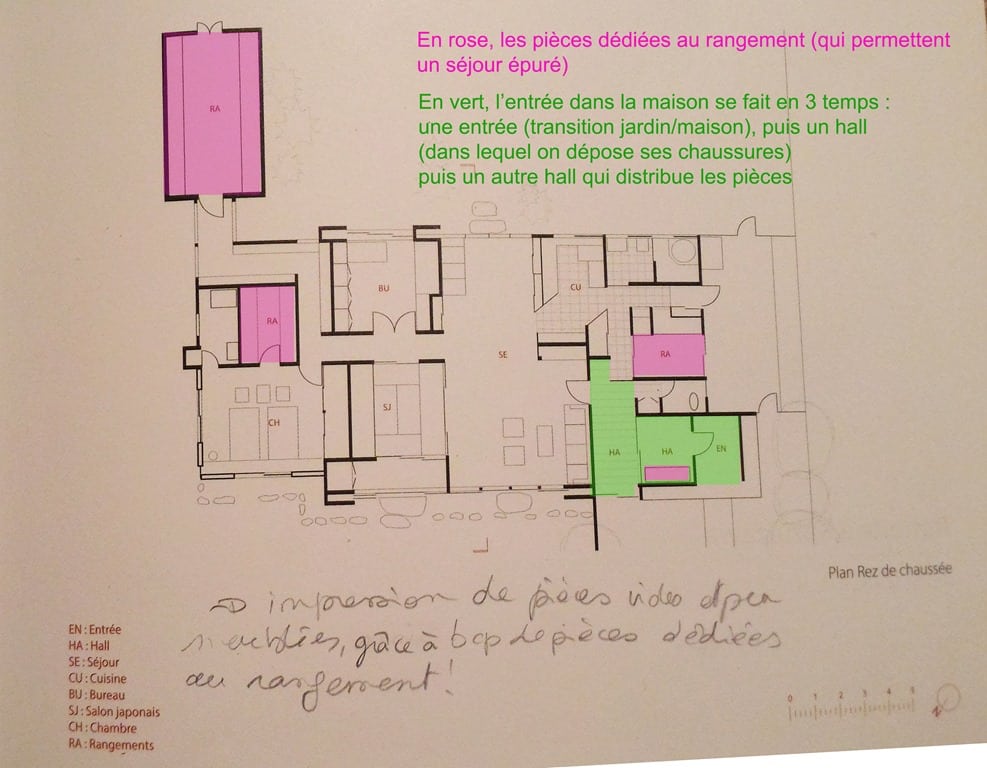 En rose, les pièces dédiées au rangement (qui permettent
un séjour épuré)
En vert, l'entrée dans la maison se fait en 3 temps :
une entrée (transition jardin/maison), puis un hall
(dans lequel on dépose ses chaussures)
puis un autre hall qui distribue les pièces
RA
BU
CU
RA
SE
RA
SJ
CH
HA
HA
EN
Plan Rez de chaussée
impression de pièces vides et peu
meublées, grâce à bcp de pièces dédiées
au rangement !
EN : Entrée
HA : Hall
SE : Séjour
CU : Cuisine
BU : Bureau
SJ : Salon japonais
CH : Chambre
RA : Rangements
0 1 2 3 4 5